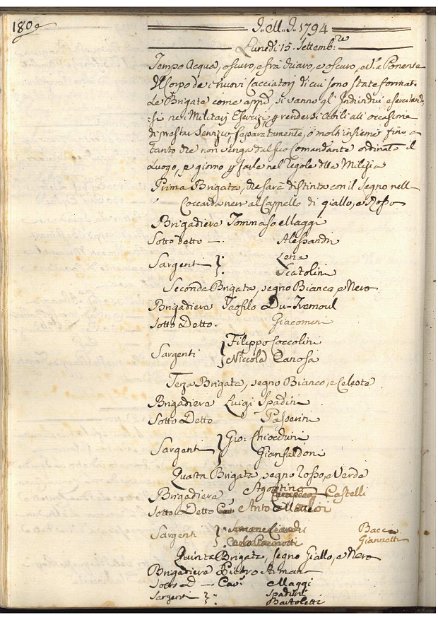 180
I. M. I. 1794
Lunedì 15. Settembre
Tempo Acqua, oscuro, e frà chiaro, e oscuro, ed a Ponente
Il Corpo de i nuovi Cacciatori di cui sono state formate
Le Brigate come app.o si vanno gl' Individui esercitando
si ne Militari Esercizj p rendersi abili all' occasione
di prestar Servizio separatamente, ò molti insieme fino a
tanto che non venga dal suo Comandante ordinato il
Luogo, e giorno p farle nel Regole della Milizia
Prima Brigata, che sarà distinta con il Segno nella
Coccarda nera al Cappello di giallo, e Rosso
Brigadiere Tommaso Maggi
Sotto detto — Alessandri
Sargenti Lena
Scatolini
Seconda Brigata, segno Bianco, e Nero
Brigadiere Teofilo Du-Tremoul
Sotto Detto. Giacomini
Sargenti Filippo Coccolini
Niccola Canosa
Terza Brigata, segno Bianco, e Celeste
Brigadiere Luigi Spadini
Sotto Detto Passerin
Sargenti Gio: Chiocchini
Gianfaldoni
Quarta Brigata, segno Rosso, e Verde
Brigadiere Agostino Castelli
Sotto Detto Cav. Anto
Sargenti Bacca
Giannetti
Quinta Brigata, segno Giallo, e Nero
Brigadiere Pietro
Sotto d. — Cav. Maggi
Sargenti Spadini
Bartoletti